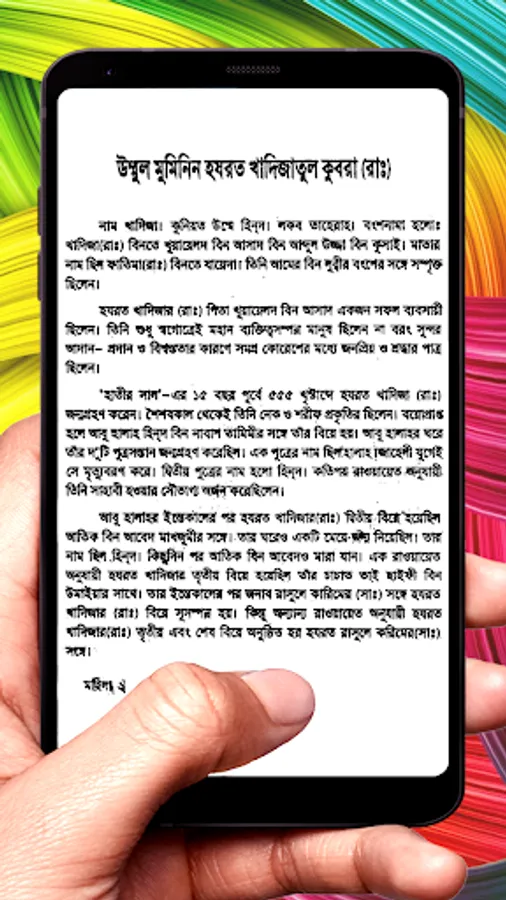 উম্মুল মুমিনিন হযরত খাদিজাতুল কুবরা (রাঃ)
নাম খাদিজা। কুনিয়ত উম্মে হিন্দ। লকব তাহেরাহ। বংশনামা হলোঃ
খাদিজা(রাঃ) বিনতে খুয়ায়েলদ বিন আসাদ বিন আব্দুল উজ্জা বিন কুসাই। মাতার
নাম ছিল ফাতিমা(রাঃ) বিনতে যায়েদা। তিনি আমের বিন লুব্বীর বংশের সঙ্গে সম্পৃক্ত
ছিলেন।
হযরত খাদিজার (রাঃ) পিতা খুয়ায়েলদ বিন আসাদ একজন সফল ব্যবসায়ী
ছিলেন। তিনি শুধু স্বগোত্রেই মহান ব্যক্তিত্বসম্পন্ন মানুষ ছিলেন না বরং সুন্দর
আদান- প্রদান ও বিশ্বস্ততার কারণে সমগ্র কোরেশের মধ্যে জনপ্রিয় ও শ্রদ্ধার পাত্র
ছিলেন।
'হাতীর সাল'-এর ১৫ বছর পূর্বে ৫৫৫ খৃষ্টাব্দে হযরত খাদিজা (রাঃ)
জন্মগ্রহণ করেন। শৈশবকাল থেকেই তিনি নেক ও শরীফ প্রকৃতির ছিলেন। বয়োপ্রাপ্ত
হলে আবু হালাহ হিন্দ বিন নাবাশ তামিমীর সঙ্গে তাঁর বিয়ে হয়। আবু হালাহর ঘরে
তাঁর দু'টি পুত্রসন্তান জন্মগ্রহণ করেছিল। এক পুত্রের নাম ছিল হালাহ। জাহেলী যুগেই
সে মৃত্যুবরণ করে। দ্বিতীয় পুত্রের নাম হলো হিন্দ। কতিপয় রাওয়ায়েত অনুযায়ী
তিনি সাহাবী হওয়ার সৌভাগ্য অর্জন করেছিলেন।
আবু হালাহর ইন্তেকালের পর হযরত খাদিজার(রাঃ) দ্বিতীয় বিয়ে হয়েছিল
আতিক বিন আবেদ মাখজুমীর সঙ্গে। তার ঘরেও একটি মেয়ে জন্ম নিয়েছিল। তার
নাম ছিল হিন্দ। কিছুদিন পর আতিক বিন আবেদও মারা যান। এক রাওয়ায়েত
অনুযায়ী হযরত খাদিজার তৃতীয় বিয়ে হয়েছিল তাঁর চাচাত ভাই ছাইফী বিন
উমাইয়ার সাথে। তার ইন্তেকালের পর জনাব রাসুলে কারিমের (সাঃ) সঙ্গে হযরত
খাদিজার (রাঃ) বিয়ে সুসম্পন্ন হয়। কিন্তু অন্যান্য রাওয়ায়েত অনুযায়ী হযরত
খাদিজার(রাঃ) তৃতীয় এবং শেষ বিয়ে অনুষ্ঠিত হয় হযরত রাসুলে করিমের(সাঃ)
সঙ্গে।
মহিলা